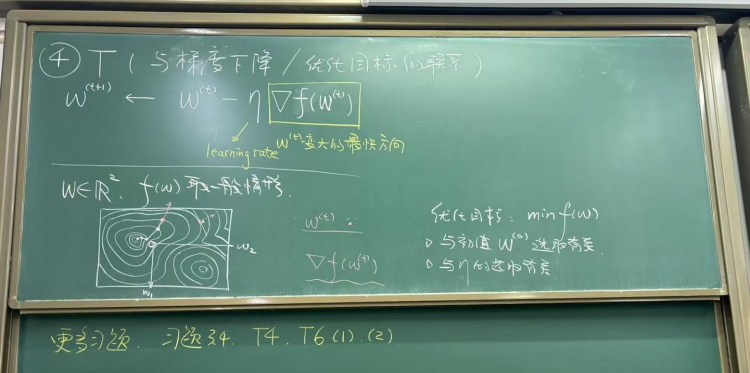 ④ T (与梯度下降/优化目标的联系)
w^(t+1) ← w^(t) - η ∇f(w^(t))
learning rate w^(t)变大的最快方向
w∈ℝ². f(w)取一般情形.
w₂
w₁
w^(t) :
∇f(w^(t))
优化目标: min f(w)
与初值 w^(0) 选取有关
与η的选取有关
更多习题. 习题3.4. T4. T6 (1). (2)